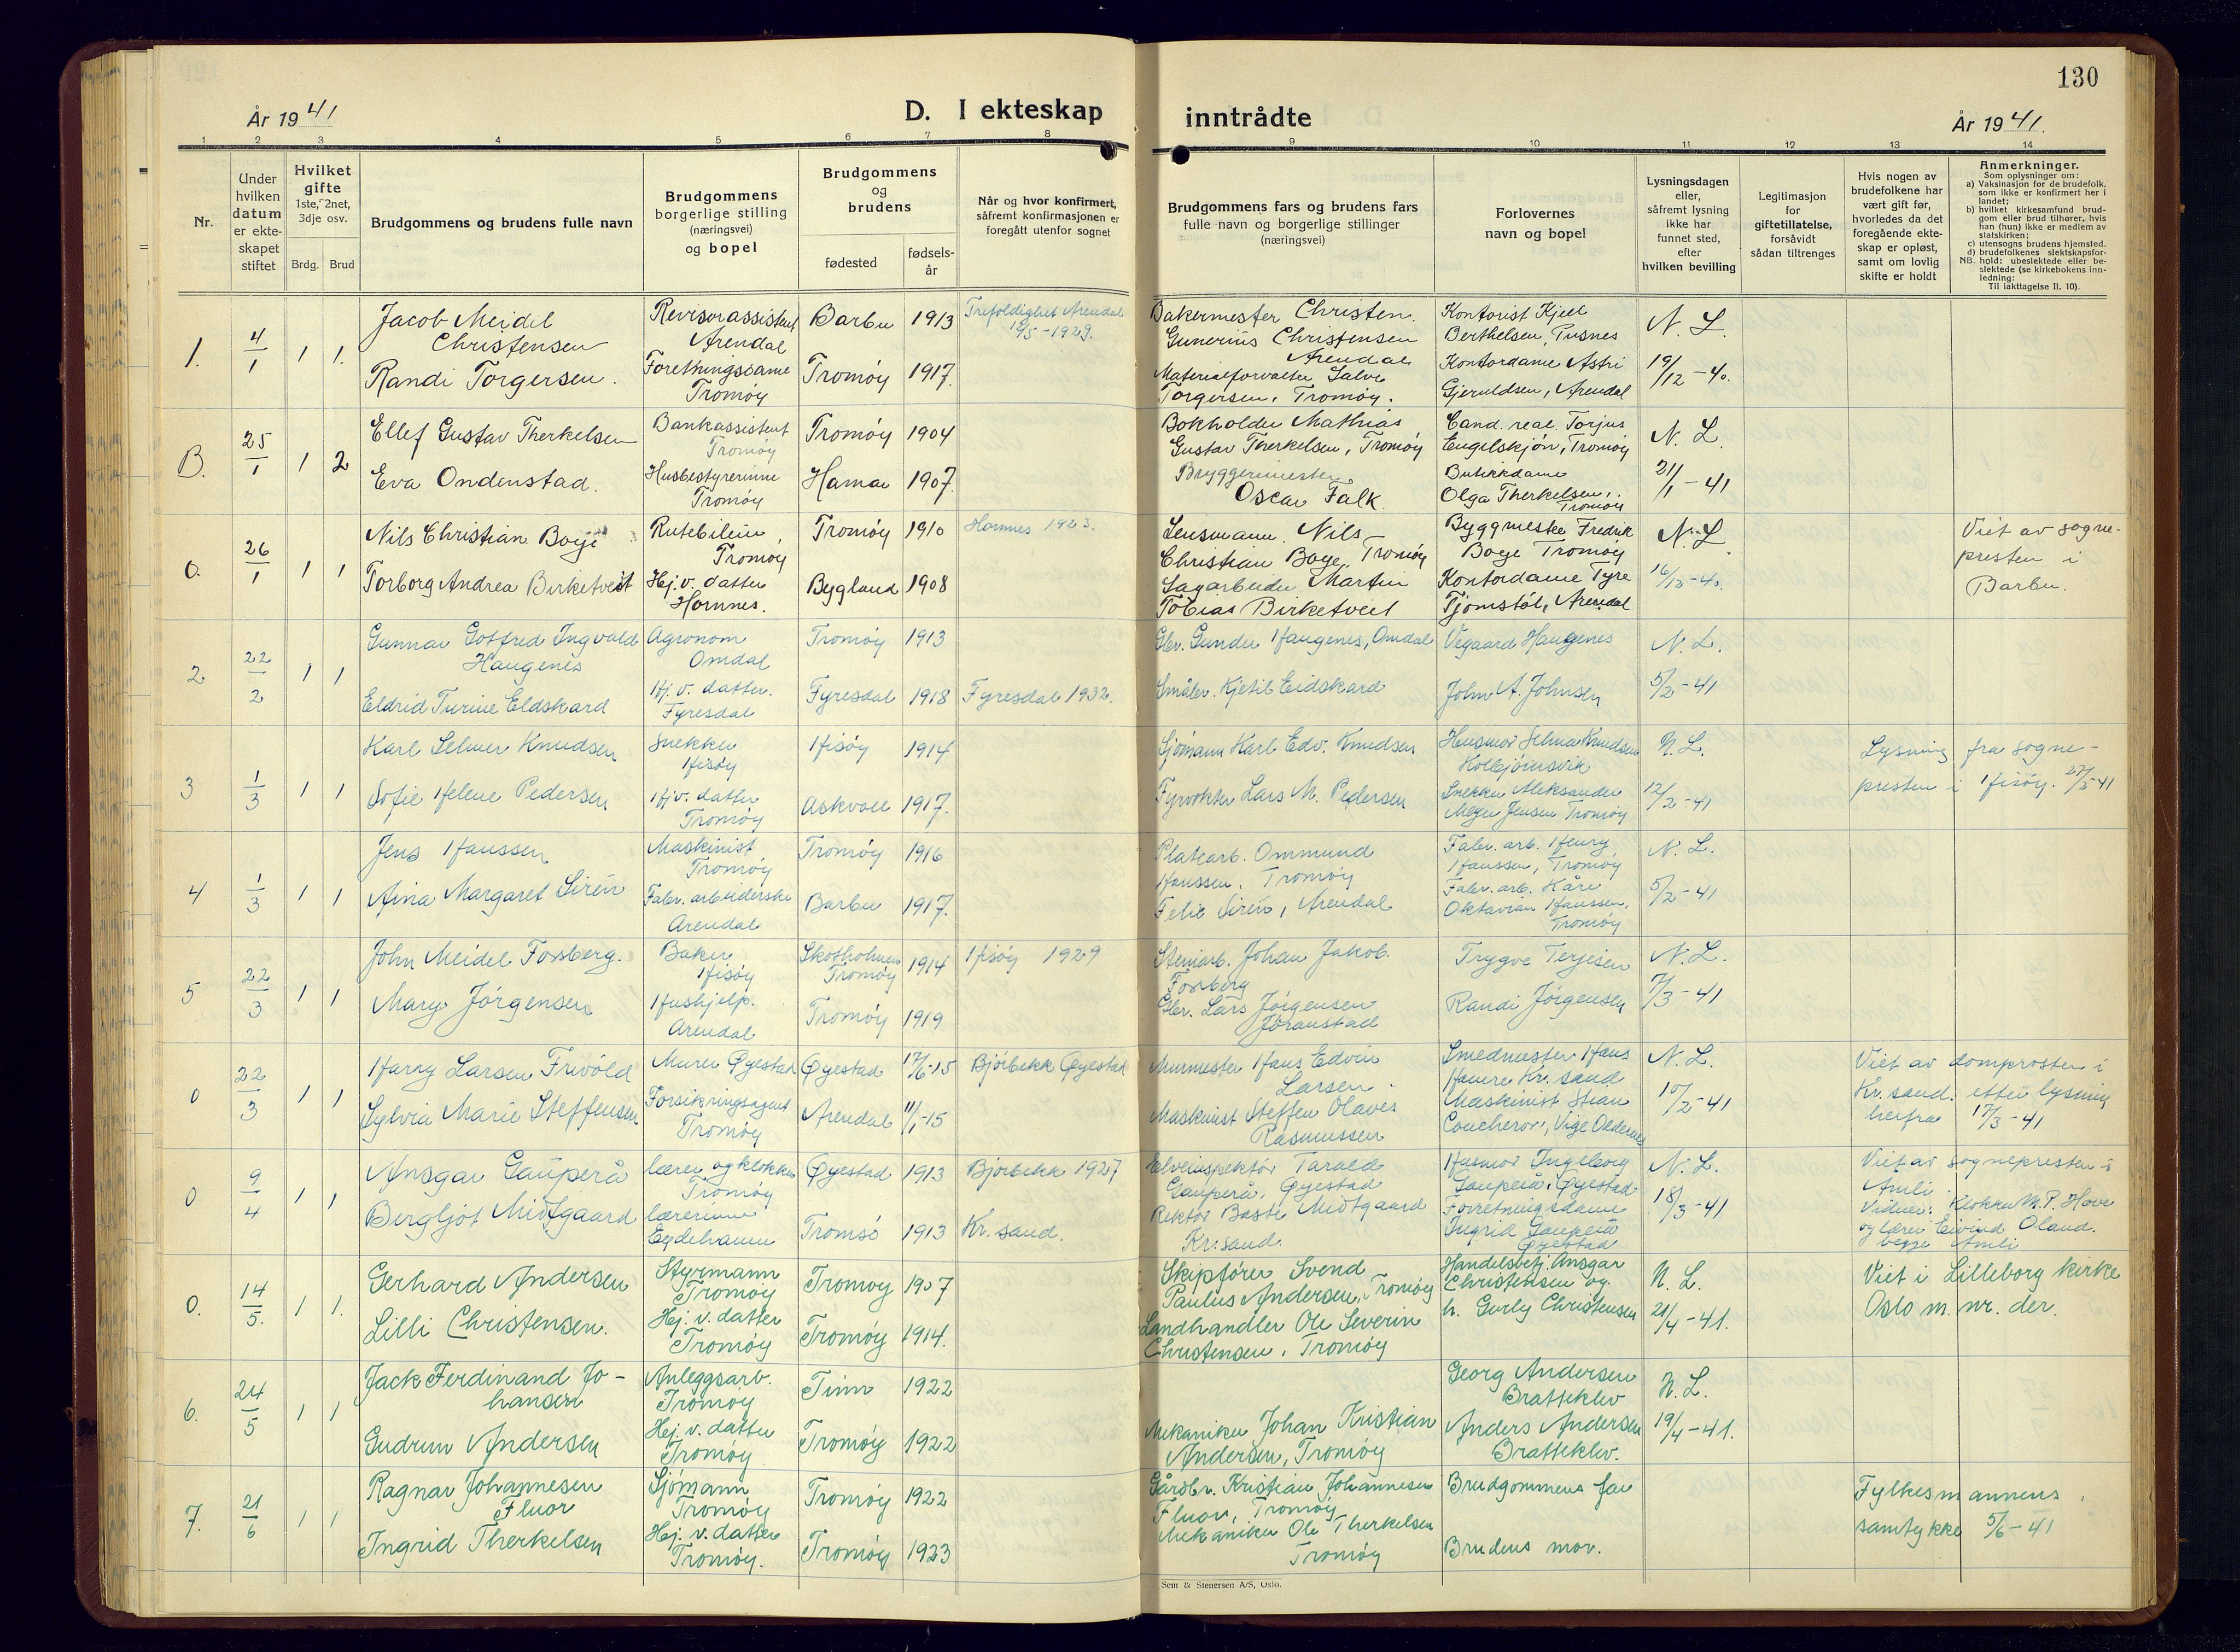 130
År 1941
D. I ekteskap inntrådte
År 1941.
1 2 3 4 5 6 7 8 9 10 11 12 13 14
Nr.
Under hvilken datum er ekteskapet stiftet
Hvilket gifte 1ste, 2net, 3dje osv.
Brdg. Brud
Brudgommens og brudens fulle navn
Brudgommens borgerlige stilling (næringsvei) og bopel
Brudgommens og brudens
fødested
fødselsår
Når og hvor konfirmert, såfremt konfirmasjonen er foregått utenfor sognet
Brudgommens fars og brudens fars fulle navn og borgerlige stillinger (næringsvei)
Forlovernes navn og bopel
Lysningsdagen eller, såfremt lysning ikke har funnet sted, efter hvilken bevilling
Legitimasjon for giftetillatelse, forsåvidt sådan tiltrenges
Hvis nogen av brudefolkene har vært gift før, hvorledes da det foregående ekteskap er opløst, samt om lovlig skifte er holdt
Anmerkninger.
Som oplysninger om:
a) Vaksinasjon for de brudefolk. som ikke er konfirmert her i landet;
b) hvilket kirkesamfund brudgom eller brud tilhører, hvis han (hun) ikke er medlem av statskirken;
c) utensogns brudens hjemsted.
d) brudefolkenes slektskapsforhold: ubeslektede eller beslektede (se kirkebokens innledning:
NB.
Til iakttagelse II. 10).
1. 4/1 1 1.
Jacob Meidel Christensen
Revisorassistent Arendal
Barbu 1913
Trefoldighet Arendal 12/5-1929.
Bakermester Christen Gunerius Christensen Arendal
Kontorist Kjell Berthelsen, Pusnes
N. L.
Randi Torgersen.
Forretningsdame Tromøy
Tromøy 1917.
Materialforvalter Salve Torgersen, Tromøy.
Kontordame Astri Gjeruldsen, Arendal
19/12-40.
B. 25/1 1 2
Ellef Gustav Therkelsen
Bankassistent Tromøy
Tromøy 1904
Bokholder Mathias Gustav Therkelsen, Tromøy
Cand. real. Torjus Engelskjøn, Tromøy
N. L.
Eva Ondenstad.
Husbestyrerinne Tromøy
Hamar 1907.
Bryggerimester Oscar Falk.
Butikkdame Olga Therkelsen, Tromøy
21/1-41
0. 26/1 1 1
Nils Christian Boye
Rutebileier, Tromøy
Tromøy 1910
Hornnes 1923.
Lensmann Nils Christian Boye, Tromøy
Byggmester Fredrik Boye Tromøy
N. L.
Viet av sognepresten i Barbu.
Torborg Andrea Birketveit
Hj. v. datter Hornnes.
Bygland 1908
Sagarbeider Martin Tobias Birketveit
Kontordame Tyre Tjomstøl, Arendal
16/12-40.
2 22/2 1 1
Gunnar Gotfred Ingvald Haugenes
Agronom Omdal
Tromøy 1913
Gbr. Gunder Haugenes, Omdal
Vegaard Haugenes
N. L.
Eldrid Turine Eidskard
Hj. v. datter. Fyresdal
Fyresdal 1918
Fyresdal 1932.
Småbr. Kjetil Eidskard
John A. Johnsen
5/2-41
3 1/3 1 1
Karl Selmer Knudsen
Snekker Hisøy
Hisøy 1914
Sjømann Karl Edv. Knudsen
Husmor Selma Knudsen Kolbjørnsvik
N. L.
Lysning fra sognepresten i Hisøy. 27/2-41
Sofie Helene Pedersen
Hj. v. datter Tromøy
Askvoll 1917.
Fyrvokter Lars M. Pedersen
Snekker Aleksander Meyer Jensen Tromøy
12/2-41
4 1/3 1 1
Jens Hanssen
Maskinist Tromøy
Tromøy 1916
Platearb. Ommund Hanssen, Tromøy
Fabr. arb. Henry Hanssen, Tromøy
N. L.
Aina Margaret Sirén
Fabr. arbeiderske Arendal
Barbu 1917.
Felix Sirén, Arendal
Fabr. arb. Kåre Oktavian Hanssen, Tromøy
5/2-41
5 22/3 1 1
John Meidel Forsberg.
Baker Hisøy
Skottholmen Tromøy 1914
Hisøy 1929
Stenarb. Johan Jakob. Forsberg
Trygve Terjesen
N. L.
Mary Jørgensen
Hushjelp. Arendal
Tromøy 1919
Gbr. Lars Jørgensen Jøranstad
Randi Jørgensen
7/3-41
0 22/3 1 1
Harry Larsen Frivold
Murer Øyestad
Øyestad 17/6-15
Bjorbekk Øyestad
Murmester Hans Edvin Larsen.
Smedmester Hans Kr. sand
N. L.
Viet av domprosten i Kr. sand. etter lysning herfra 17/3-41
Sylvia Marie Steffensen
Forsikringsagent Tromøy
Arendal 11/1-15
Maskinist Steffen Olaves Rasmussen
Maskinist Stian Coucheron, Vige Oddernes
10/2-41
0 9/4 1 1
Ansgar Gauperå
lærer og klokker Tromøy
Øyestad 1913
Bjorbekk 1927
Elveinspektør Tarald Gauperå, Øyestad
Husmor Ingeborg Gauperå, Øyestad
N. L.
Viet av sognepresten i Åmli.
Vidner: Klokker M. P. Hove og lærer Eivind Oland. begge Åmli
Bergljot Midtgaard
lærerinne Eydehavn
Tromsø 1913
Kr. sand.
Rektor Basti Midtgaard Kr. sand
Forretningsdame Ingrid Gauperå Øyestad
18/3-41
0. 14/5. 1 1.
Gerhard Andersen
Styrmann Tromøy
Tromøy 1907
Skipfører Svend Paulus Andersen, Tromøy
Handelsbetj. Ansgar Christensen og
N. L.
Viet i Lilleborg kirke Oslo m. nr. der.
Lilli Christensen.
Hj. v. datter Tromøy
Tromøy 1914.
Landhandler Ole Severin Christensen, Tromøy
h. Gurly Christensen
21/4-41.
6. 24/5 1 1
Jack Ferdinand Johansen
Anleggsarb. Tromøy
Tinn 1922
Georg Andersen Bratteklev
N. L.
Gudrun Andersen
Hj. v. datter Tromøy
Tromøy 1922
Mekaniker Johan Kristian Andersen, Tromøy
Anders Andersen Bratteklev.
19/4-41.
7. 21/6 1 1
Ragnar Johannesen Fluor
Sjømann Tromøy
Tromøy 1922
Gårdbr. Kristian Johannesen Fluor, Tromøy
Brudgommens far
Fylkesmannens samtykke 5/6-41
Ingrid Therkelsen
Hj. v. datter Tromøy.
Tromøy 1923
Mekaniker Ole Therkelsen Tromøy
Brudens mor.
Sem & Stenersen A/S, Oslo.